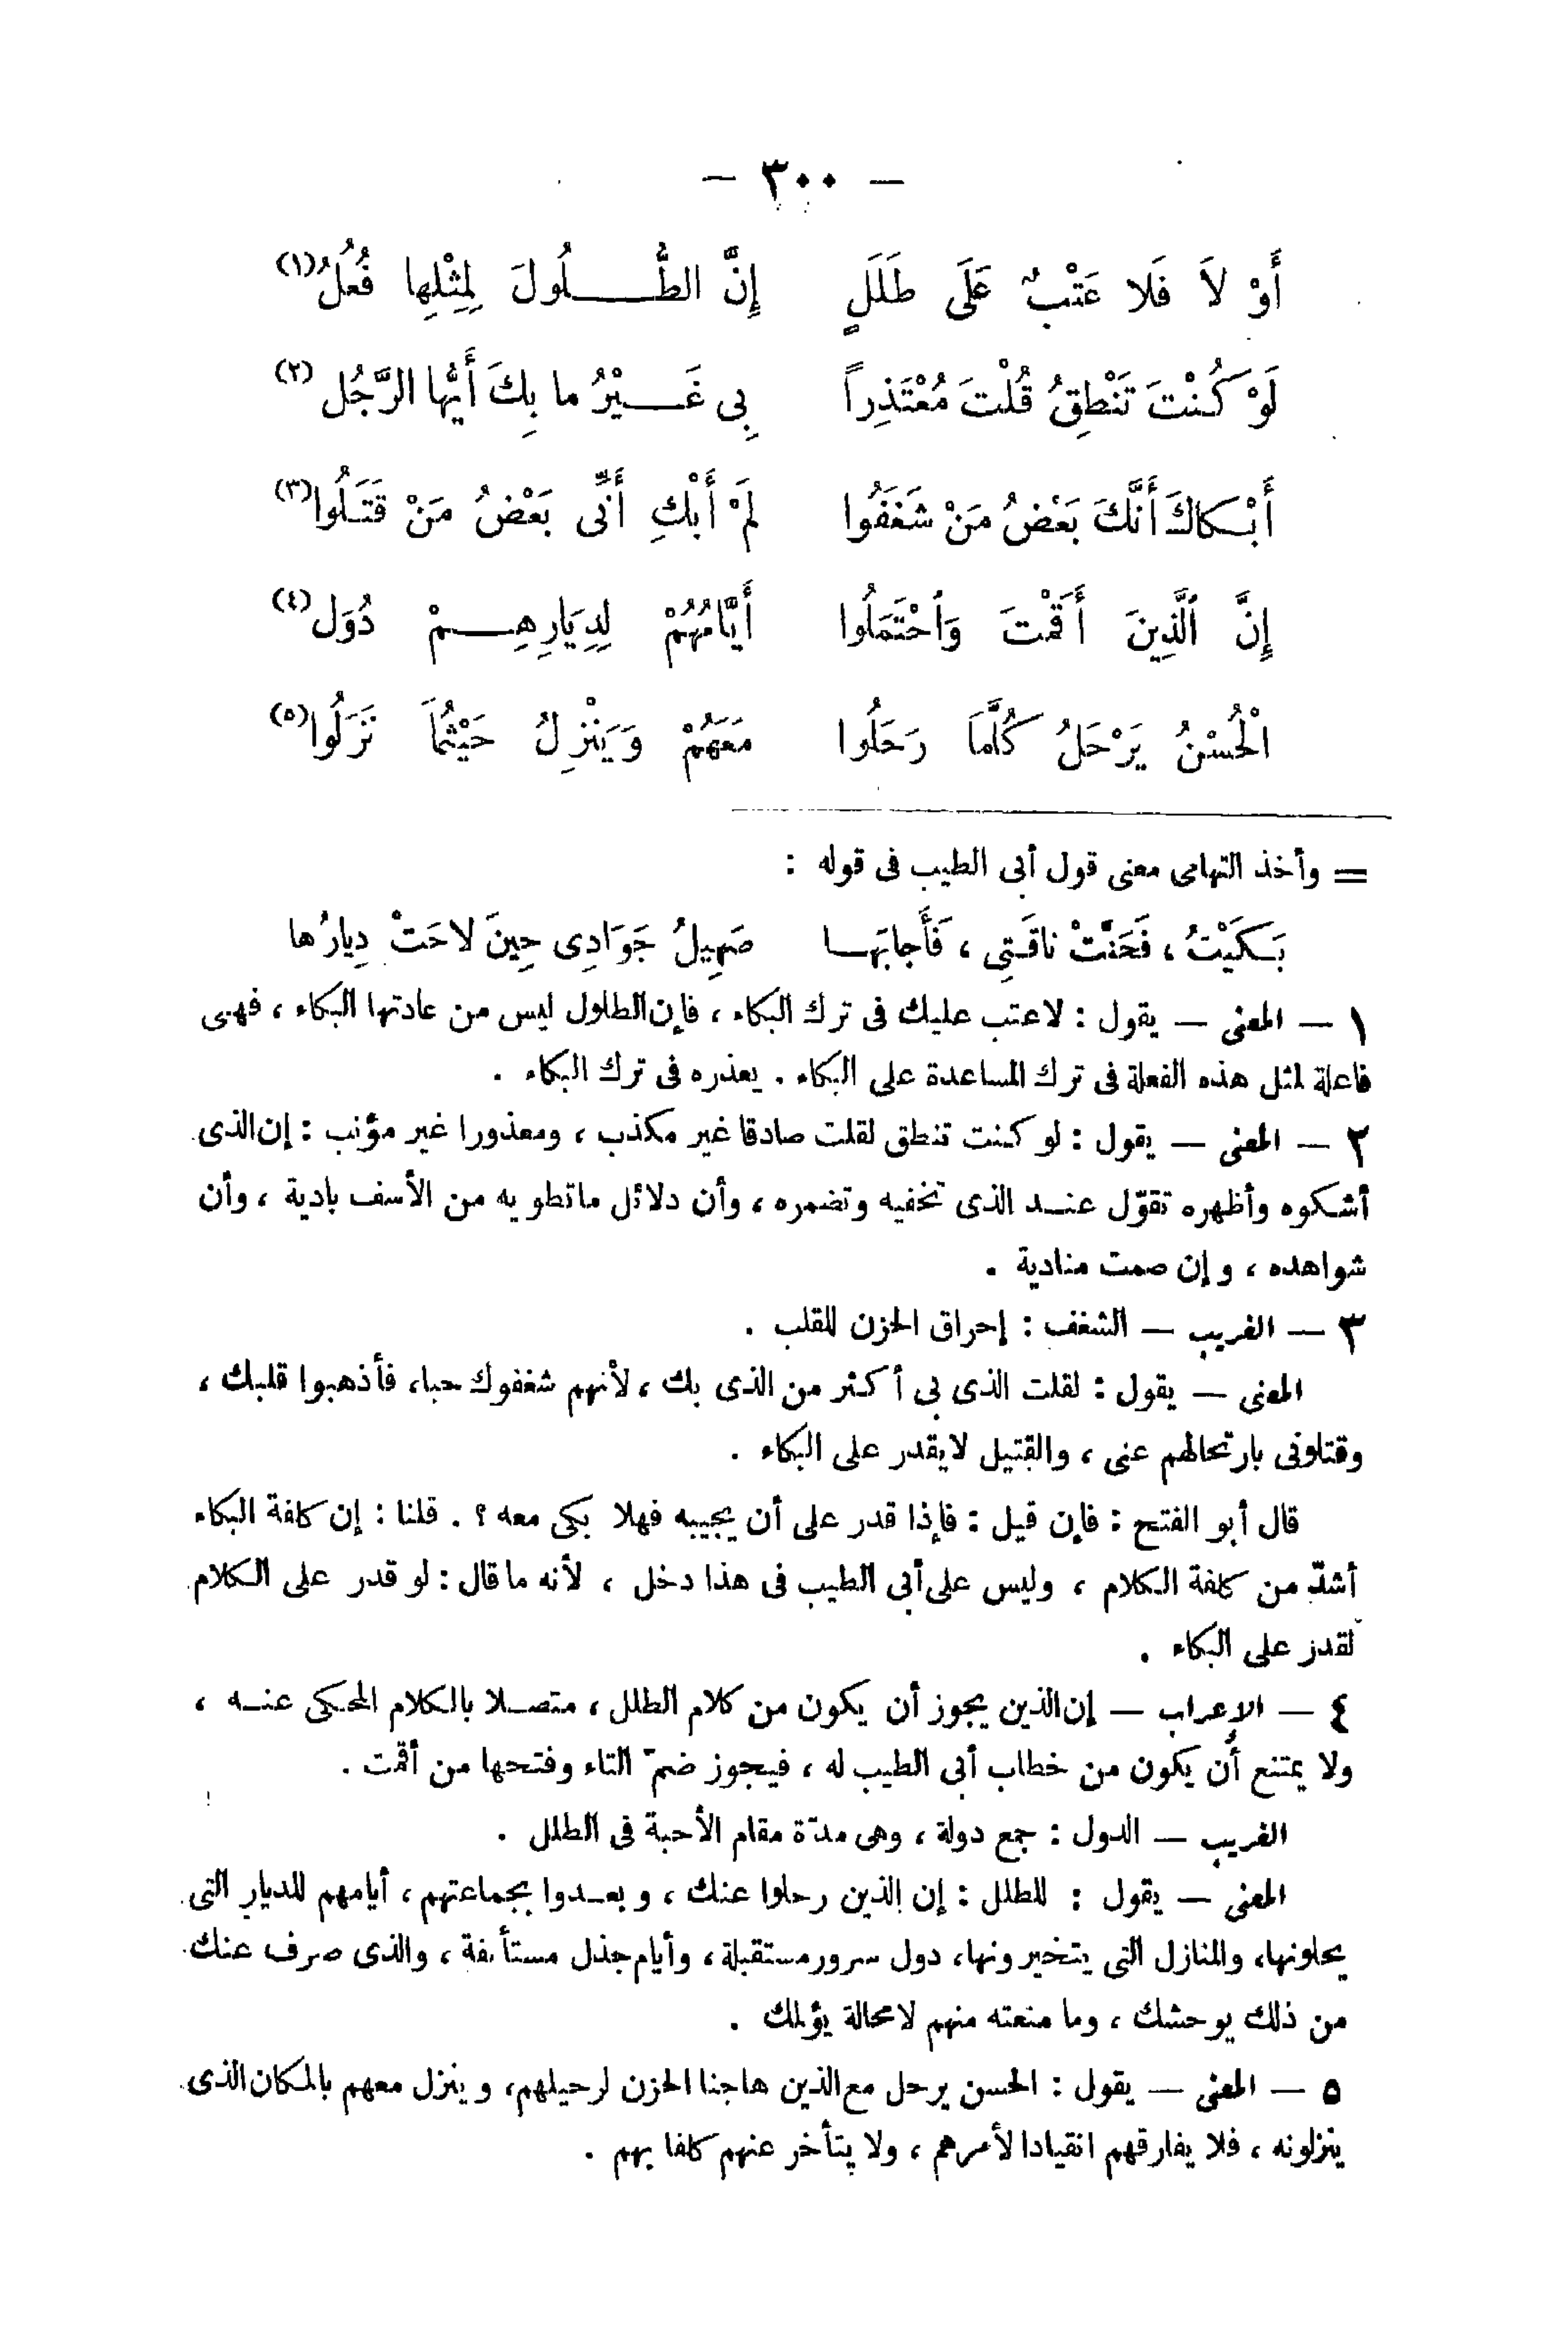 — ٣٠٠ —
أَوْ لاَ فَلا عَتْبٌ عَلَى طَلَلٍ إِنَّ الطُّلُولَ لِمِثْلِها فُعُلُ (١)
لَوْ كُنْتَ تَنْطِقُ قُلْتَ مُعْتَذِراً بِى غَيْرُ ما بِكَ أَيُّها الرَّجُلُ (٢)
أَبْكاكَ أَنَّكَ بَعْضُ مَنْ شَغَفُوا لَمْ أَبْكِ أَنِّى بَعْضُ مَنْ قَتَلُوا (٣)
إِنَّ الَّذِينَ أَقَمْتَ وَاحْتَمَلُوا أَيَّامُهُمْ لِدِيَارِهِمْ دُوَلُ (٤)
الْحُسْنُ يَرْحَلُ كُلَّمَا رَحَلُوا مَعَهُمْ وَيَنْزِلُ حَيْثُمَا نَزَلُوا (٥)
= وأخذ التهامى معنى قول أبى الطيب فى قوله :
بَكَيْتُ ، فَحَنَّتْ ناقَتِى ، فَأَجابَهَا صَهِيلُ جَوَادِى حِينَ لاحَتْ دِيارُها
١ — المعنى — يقول : لاعتب عليك فى ترك البكاء ، فإن الطلول ليس من عادتها البكاء ، فهى
فاعلة لمثل هذه الفعلة فى ترك المساعدة على البكاء . يعذره فى ترك البكاء .
٢ — المعنى — يقول : لو كنت تنطق لقلت صادقا غير مكذب ، ومعذورا غير مؤنب : إن الذى
أشكوه وأظهره تقوّل عند الذى تخفيه وتضمره ، وأن دلائل ماتطويه من الأسف بادية ، وأن
شواهده ، وإن صمت منادية .
٣ — الغريب — الشغف : إحراق الحزن للقلب .
المعنى — يقول : لقلت الذى بى أكثر من الذى بك ، لأنهم شغفوك حبا، فأذهبوا قلبك ،
وقتلونى بارتحالهم عنى ، والقتيل لايقدر على البكاء .
قال أبو الفتح : فإن قيل : فإذا قدر على أن يجيبه فهلا بكى معه ؟ . قلنا : إن كلفة البكاء
أشدّ من كلفة الكلام ، وليس على أبى الطيب فى هذا دخل ، لأنه ما قال : لو قدر على الكلام
لقدر على البكاء .
٤ — الإعراب — إن الذين يجوز أن يكون من كلام الطلل ، متصلا بالكلام المحكى عنه ،
ولا يمتنع أن يكون من خطاب أبى الطيب له ، فيجوز ضمّ التاء وفتحها من أقمت .
الغريب — الدول : جمع دولة ، وهى مدّة مقام الأحبة فى الطلل .
المعنى — يقول : للطلل : إن الذين رحلوا عنك ، وبعدوا بجماعتهم ، أيامهم للديار التى
يحلونها، والمنازل التى يتخيرونها، دول سرور مستقبلة ، وأيام جذل مستأنفة ، والذى صرف عنك
من ذلك يوحشك ، وما منعته منهم لامحالة يؤلمك .
٥ — المعنى — يقول : الحسن يرحل مع الذين هاجنا الحزن لرحيلهم، وينزل معهم بالمكان الذى
ينزلونه ، فلا يفارقهم انقيادا لأمرهم ، ولا يتأخر عنهم كلفا بهم .